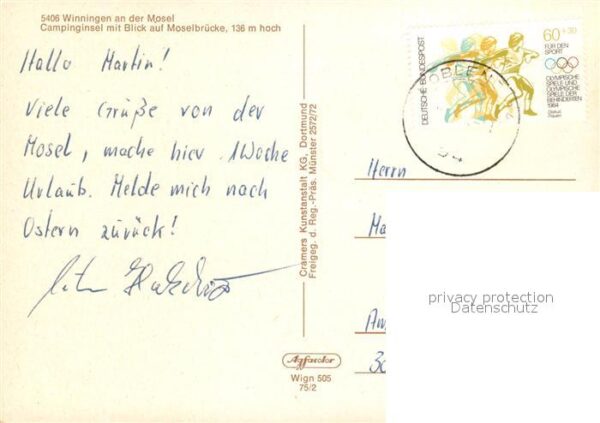 5406 Winningen an der Mosel
Campinginsel mit Blick auf Moselbrücke, 136 m hoch
Hallo Martin!
Viele Grüße von der
Mosel, mache hier 1 Woche
Urlaub. Melde mich nach
Ostern zurück!
Cramers Kunstanstalt KG, Dortmund
Freigeg. d. Reg.-Präs. Münster 2572/72
Agfacolor
Wign 505
75/2
DEUTSCHE BUNDESPOST
60+30
FÜR DEN
SPORT
OLYMPISCHE
SPIELE UND
OLYMPISCHE
SPIELE DER
BEHINDERTEN
1984
Diskus
Frauen
Herrn
Ma
privacy protection
Datenschutz